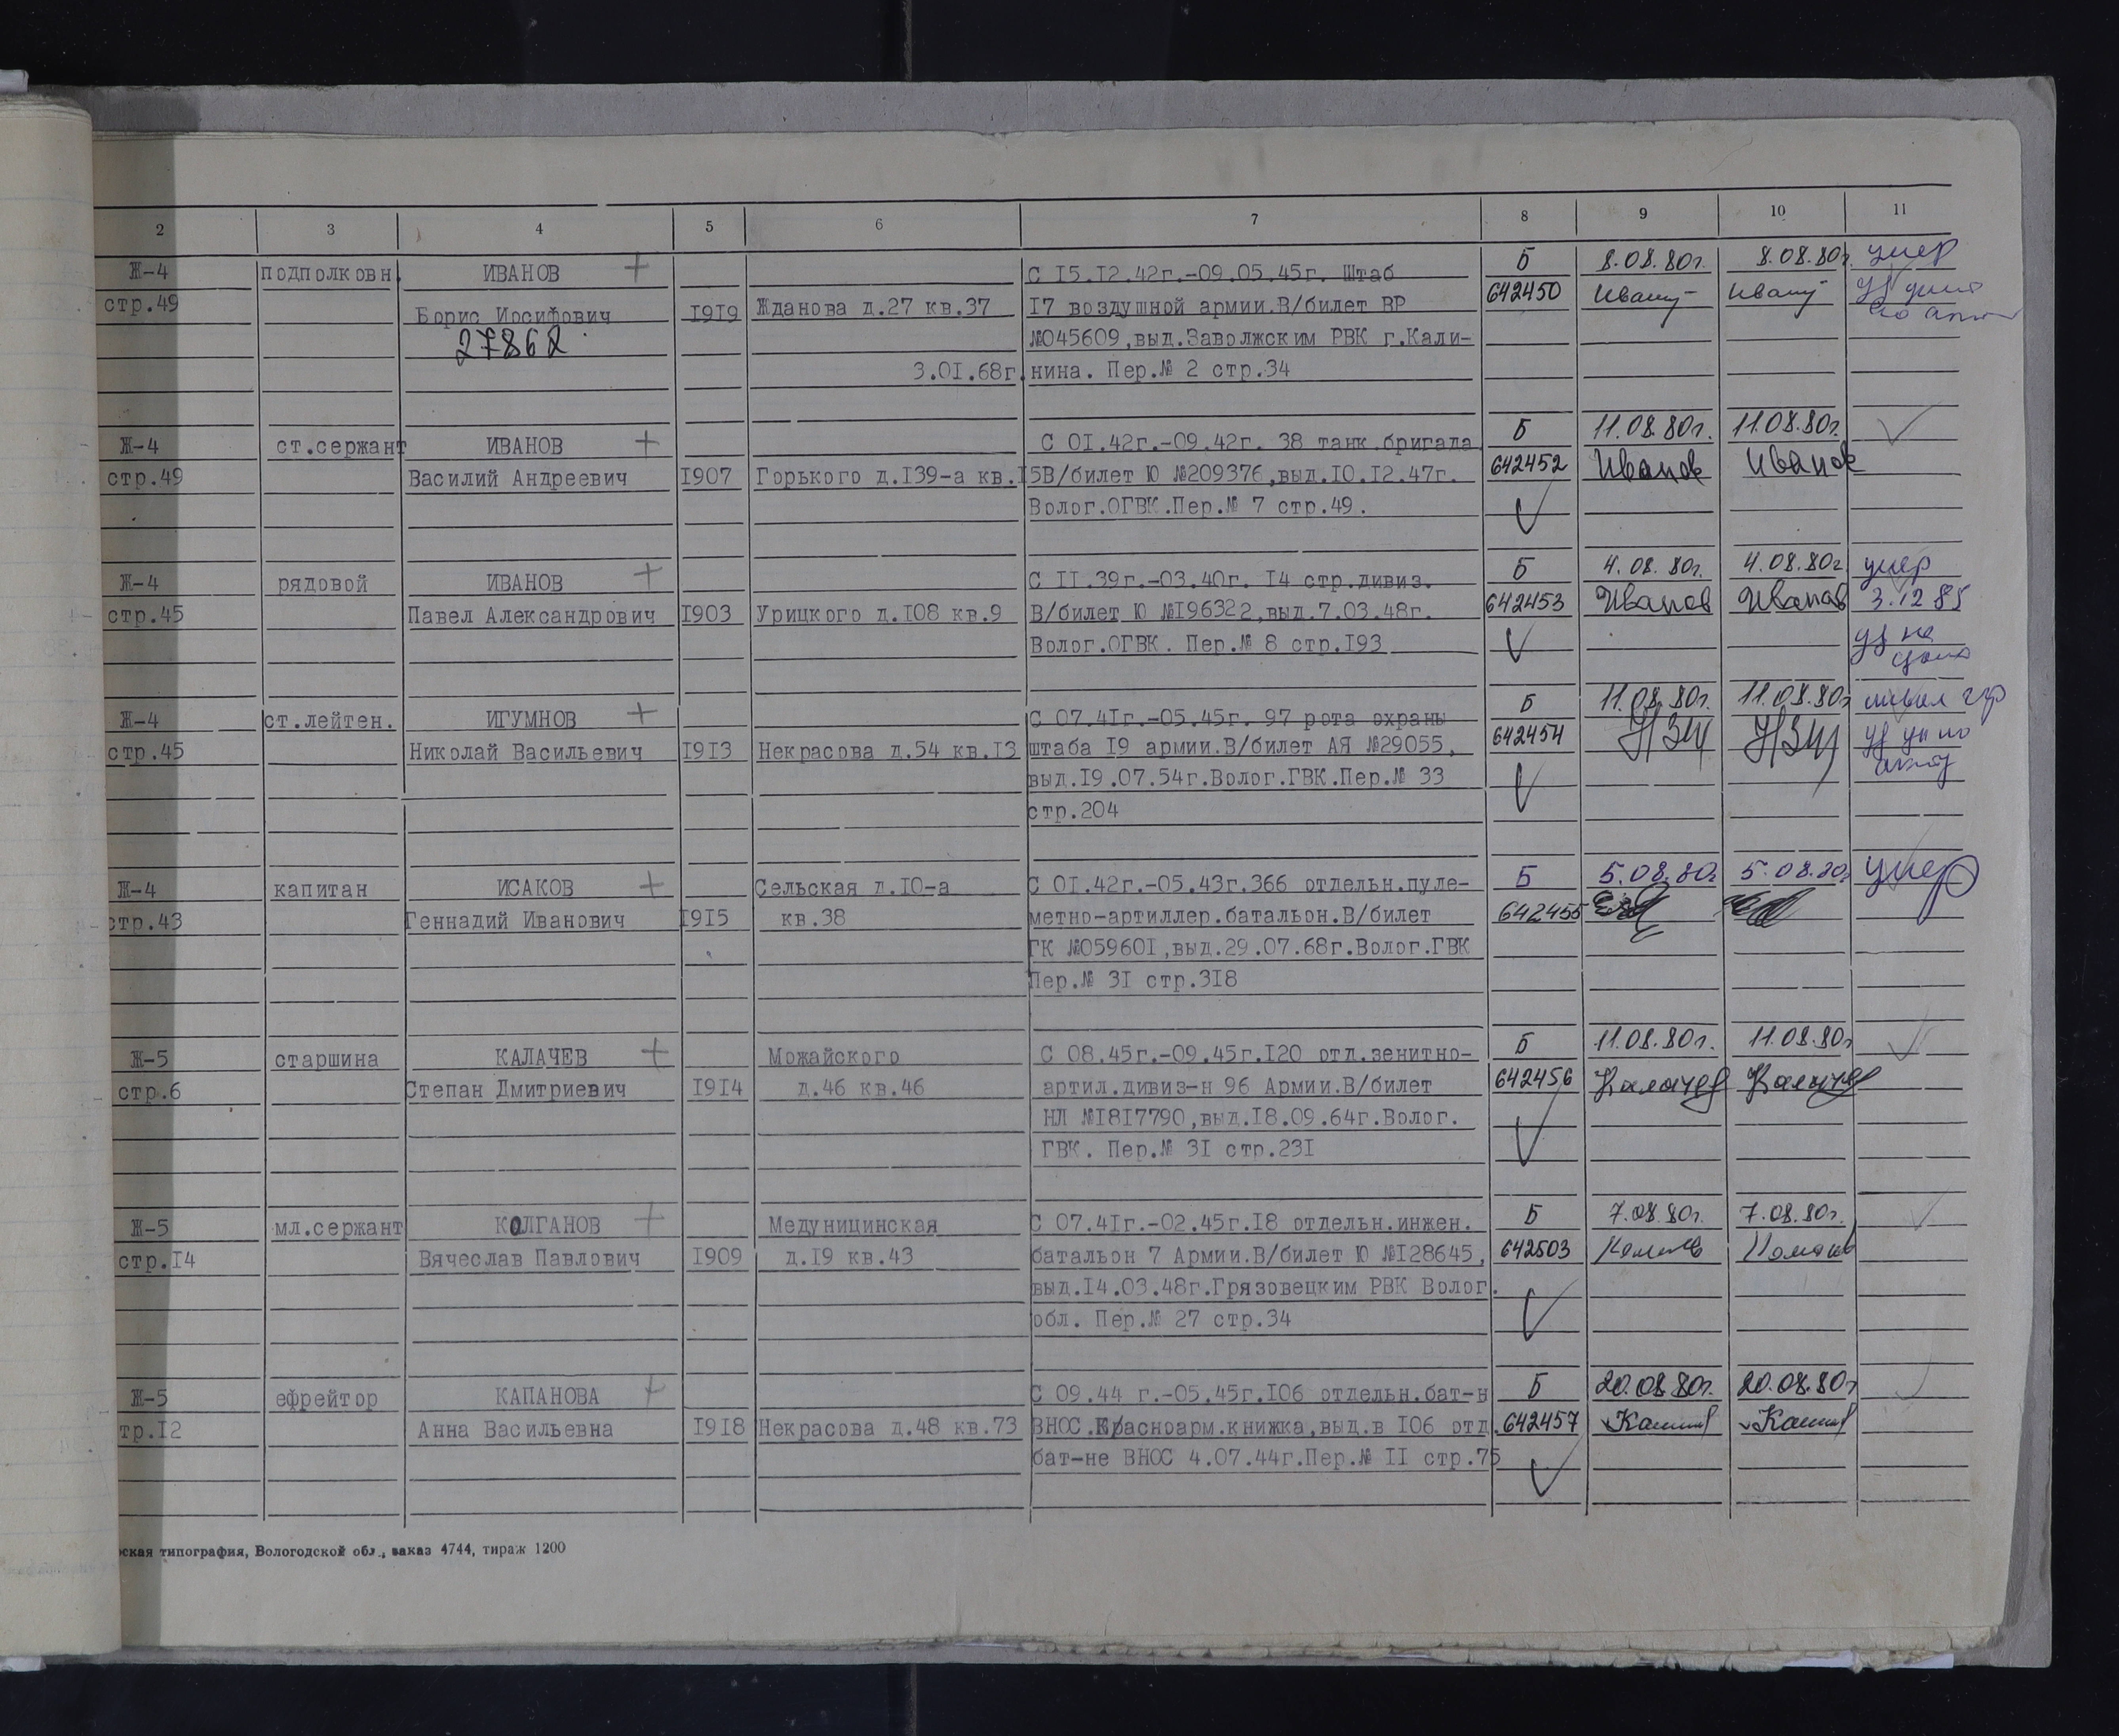 2 3 4 5 6 7 8 9 10 11
Ж-4 подполковн. ИВАНОВ + С 15.12.42г.-09.05.45г. Штаб Б 8.08.80г. 8.08.80г. умер
стр.49 Борис Иосифович 1919 Жданова д.27 кв.37 17 воздушной армии.В/билет ВР 642450
27862 №045609,выд.Заволжским РВК г.Кали-
3.01.68г. нина. Пер.№ 2 стр.34
Ж-4 ст.сержант ИВАНОВ + С 01.42г.-09.42г. 38 танк.бригада Б 11.08.80г. 11.08.80г.
стр.49 Василий Андреевич 1907 Горького д.139-а кв.15 В/билет Ю №209376,выд.10.12.47г. 642452 Иванов Иванов
Волог.ОГВК.Пер.№ 7 стр.49.
Ж-4 рядовой ИВАНОВ + С 11.39г.-03.40г. 14 стр.дивиз. Б 4.08.80г. 4.08.80г. умер
стр.45 Павел Александрович 1903 Урицкого д.108 кв.9 В/билет Ю №196322,выд.7.03.48г. 642453 Иванов Иванов 3.12 85
Волог.ОГВК. Пер.№ 8 стр.193
Ж-4 ст.лейтен. ИГУМНОВ + С 07.41г.-05.45г. 97 рота охраны Б 11.08.80г. 11.08.80г.
стр.45 Николай Васильевич 1913 Некрасова д.54 кв.13 штаба 19 армии.В/билет АЯ №29055, 642454
выд.19.07.54г.Волог.ГВК.Пер.№ 33
стр.204
Ж-4 капитан ИСАКОВ + Сельская д.10-а С 01.42г.-05.43г.366 отдельн.пуле- Б 5.08.80г. 5.08.80г. умер
стр.43 Геннадий Иванович 1915 кв.38 метно-артиллер.батальон.В/билет 642455
ГК №059601,выд.29.07.68г.Волог.ГВК
Пер.№ 31 стр.318
Ж-5 старшина КАЛАЧЕВ + Можайского С 08.45г.-09.45г.120 отд.зенитно- Б 11.08.80г. 11.08.80г
стр.6 Степан Дмитриевич 1914 д.46 кв.46 артил.дивиз-н 96 Армии.В/билет 642456 Калачев Калачев
НЛ №1817790,выд.18.09.64г.Волог.
ГВК. Пер.№ 31 стр.231
Ж-5 мл.сержант КОЛГАНОВ + Медуницинская С 07.41г.-02.45г.18 отдельн.инжен. Б 7.08.80г. 7.08.80г.
стр.14 Вячеслав Павлович 1909 д.19 кв.43 батальон 7 Армии.В/билет Ю №128645, 642503
выд.14.03.48г.Грязовецким РВК Волог.
обл. Пер.№ 27 стр.34
Ж-5 ефрейтор КАПАНОВА + С 09.44 г.-05.45г.106 отдельн.бат-н Б 20.08.80г. 20.08.80г
тр.12 Анна Васильевна 1918 Некрасова д.48 кв.73 ВНОС.Красноарм.книжка,выд.в 106 отд. 642457
бат-не ВНОС 4.07.44г.Пер.№ 11 стр.75
ская типография, Вологодской обл., заказ 4744, тираж 1200